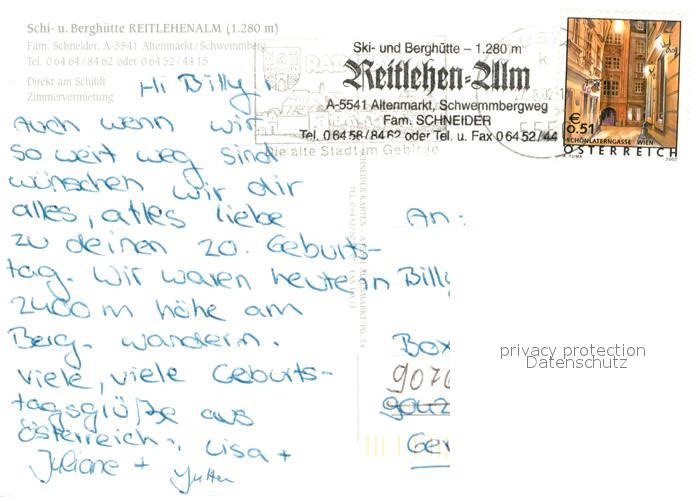 Schi- u. Berghütte REITLEHENALM (1.280 m)
Fam. Schneider, A-5541 Altenmarkt/Schwemmberg
Tel. 0 64 64/84 62 oder 0 64 52/44 15
Direkt am Schilift
Zimmervermietung
Hi Billy,
Auch wenn wir
so weit weg sind
wünschen wir dir
alles, alles liebe
zu deinen 20. Geburts-
tag. Wir waren heute in
2400 m höhe am
Berg. wandern.
Viele, viele Geburts-
tagsgrüße aus
Österreich, Lisa +
Juliane + Jutta
Ski- und Berghütte – 1.280 m
Reitlehen-Alm
A-5541 Altenmarkt, Schwemmbergweg
Fam. SCHNEIDER
Tel. 0 64 58/84 62 oder Tel. u. Fax 0 64 52/44
Die alte Stadt im Gebirge
€
0.51
SCHÖNLATERNGASSE WIEN
ÖSTERREICH
A. TUMA
2002
An:
Billy
Box
9076
9042
Ger
privacy protection
Datenschutz